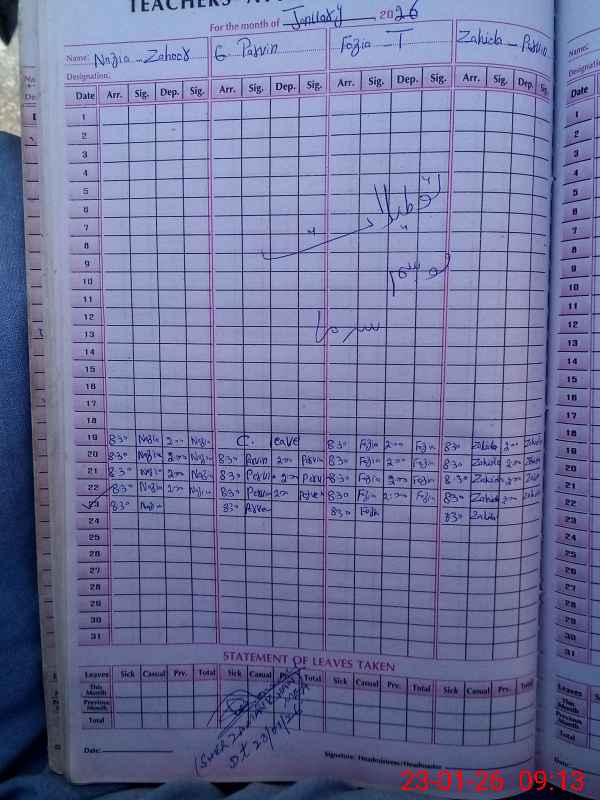 TEACHERS'
For the month of January 2026
Name: Nazia - Zahoor G Parvin Fozia - T Zahida - Parvin
Designation:
Date Arr. Sig. Dep. Sig. Arr. Sig. Dep. Sig. Arr. Sig. Dep. Sig. Arr. Sig. Dep. Sig.
1
2
3
4
5
6
7
8
9
10
11
12
13
14
15
16
17
18
19 830 Nazia 200 Nazia C. leave 830 Fozia 200 Fozia 830 Zahida 200 Zahida
20 830 Nazia 200 Nazia 830 Parvin 200 Parvin 830 Fozia 200 Fozia 830 Zahida 200 Zahida
21 830 Nazia 200 Nazia 830 Parvin 200 Parvin 830 Fozia 200 Fozia 830 Zahida 200 Zahida
22 830 Nazia 200 Nazia 830 Parvin 200 Parvin 830 Fozia 200 Fozia 830 Zahida 200 Zahida
23 830 Nazia 830 Parvin 830 Fozia 830 Zahida
24
25
26
27
28
29
30
31
STATEMENT OF LEAVES TAKEN
Leaves Sick Casual Prv. Total Sick Casual Prv. Total Sick Casual Prv. Total Sick Casual Prv. Total
This Month
Previous Month
Total
Dt 23/01/26
Date:
Signature: Headmistress/Headmaster
23-01-26 09:13